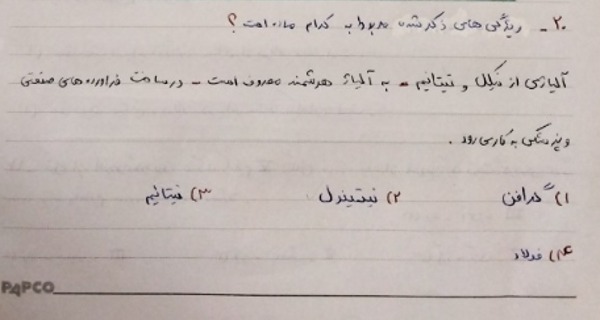 ۲۰- ویژگی های ذکر شده مربوط به کدام ماده است؟
آلیاژی از نیکل و تیتانیم - به آلیاژ هوشمند معروف است - در ساخت فراورده های صنعتی
و پزشکی به کار می رود.
۱) گرافن ۲) نیتینول ۳) تیتانیم
۴) فولاد
PAPCO